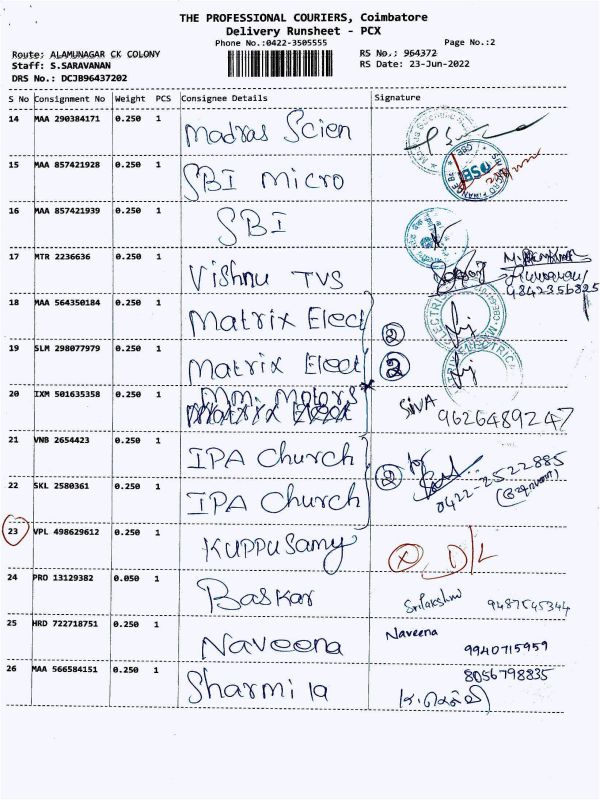 THE PROFESSIONAL COURIERS, Coimbatore
Delivery Runsheet - PCX
Phone No.:0422-3505555 Page No.:2
Route: ALAMUNAGAR CK COLONY RS No.: 964372
Staff: S.SARAVANAN RS Date: 23-Jun-2022
DRS No.: DCJB96437202
S No Consignment No Weight PCS Consignee Details Signature
14 MAA 290384171 0.250 1 Madras Scien
15 MAA 857421928 0.250 1 SBI Micro
16 MAA 857421939 0.250 1 SBI
17 MTR 2236636 0.250 1 Vishnu TVS 9842356825
18 MAA 564350184 0.250 1 Matrix Elect 2
19 SLM 298077979 0.250 1 Matrix Elect 2
20 IXM 501635358 0.250 1 Mm. Motors SIVA 9626489247
21 VNB 2654423 0.250 1 IPA Church
22 SKL 2580361 0.250 1 IPA Church 2 0422-2522885
23 VPL 498629612 0.250 1 Kuppusamy X D/L
24 PRO 13129382 0.050 1 Baskar Srilakshmi 9487545344
25 HRD 722718751 0.250 1 Naveena Naveena 9940715959
26 MAA 566584151 0.250 1 Sharmila 8056798835